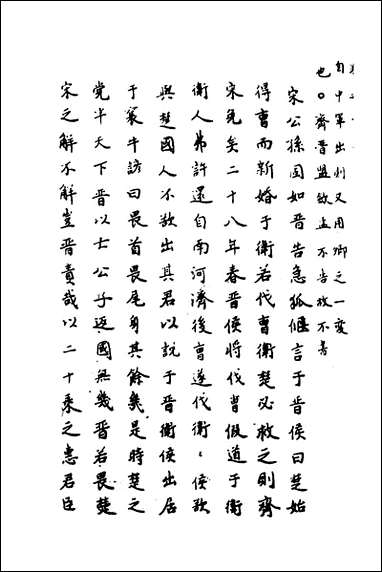 自中軍出則又用卿之一變
也○齊晉盟斂盂不告故不書
宋公孫固如晉告急狐偃言于晉侯曰楚始
得曹而新婚于衛若伐曹衛楚必救之則齊
宋免矣二十八年春晉侯將伐曹假道于衛
衛人弗許還自南河濟侵曹遂伐衛〻侯欲
與楚國人不欲出其君以說于晉衛侯出居
于襄牛諺曰畏首畏尾身其餘幾是時楚之
党半天下晉以士公子返國無幾晉若畏楚
宋之解不解豈晉責哉以二十乘之惠君臣